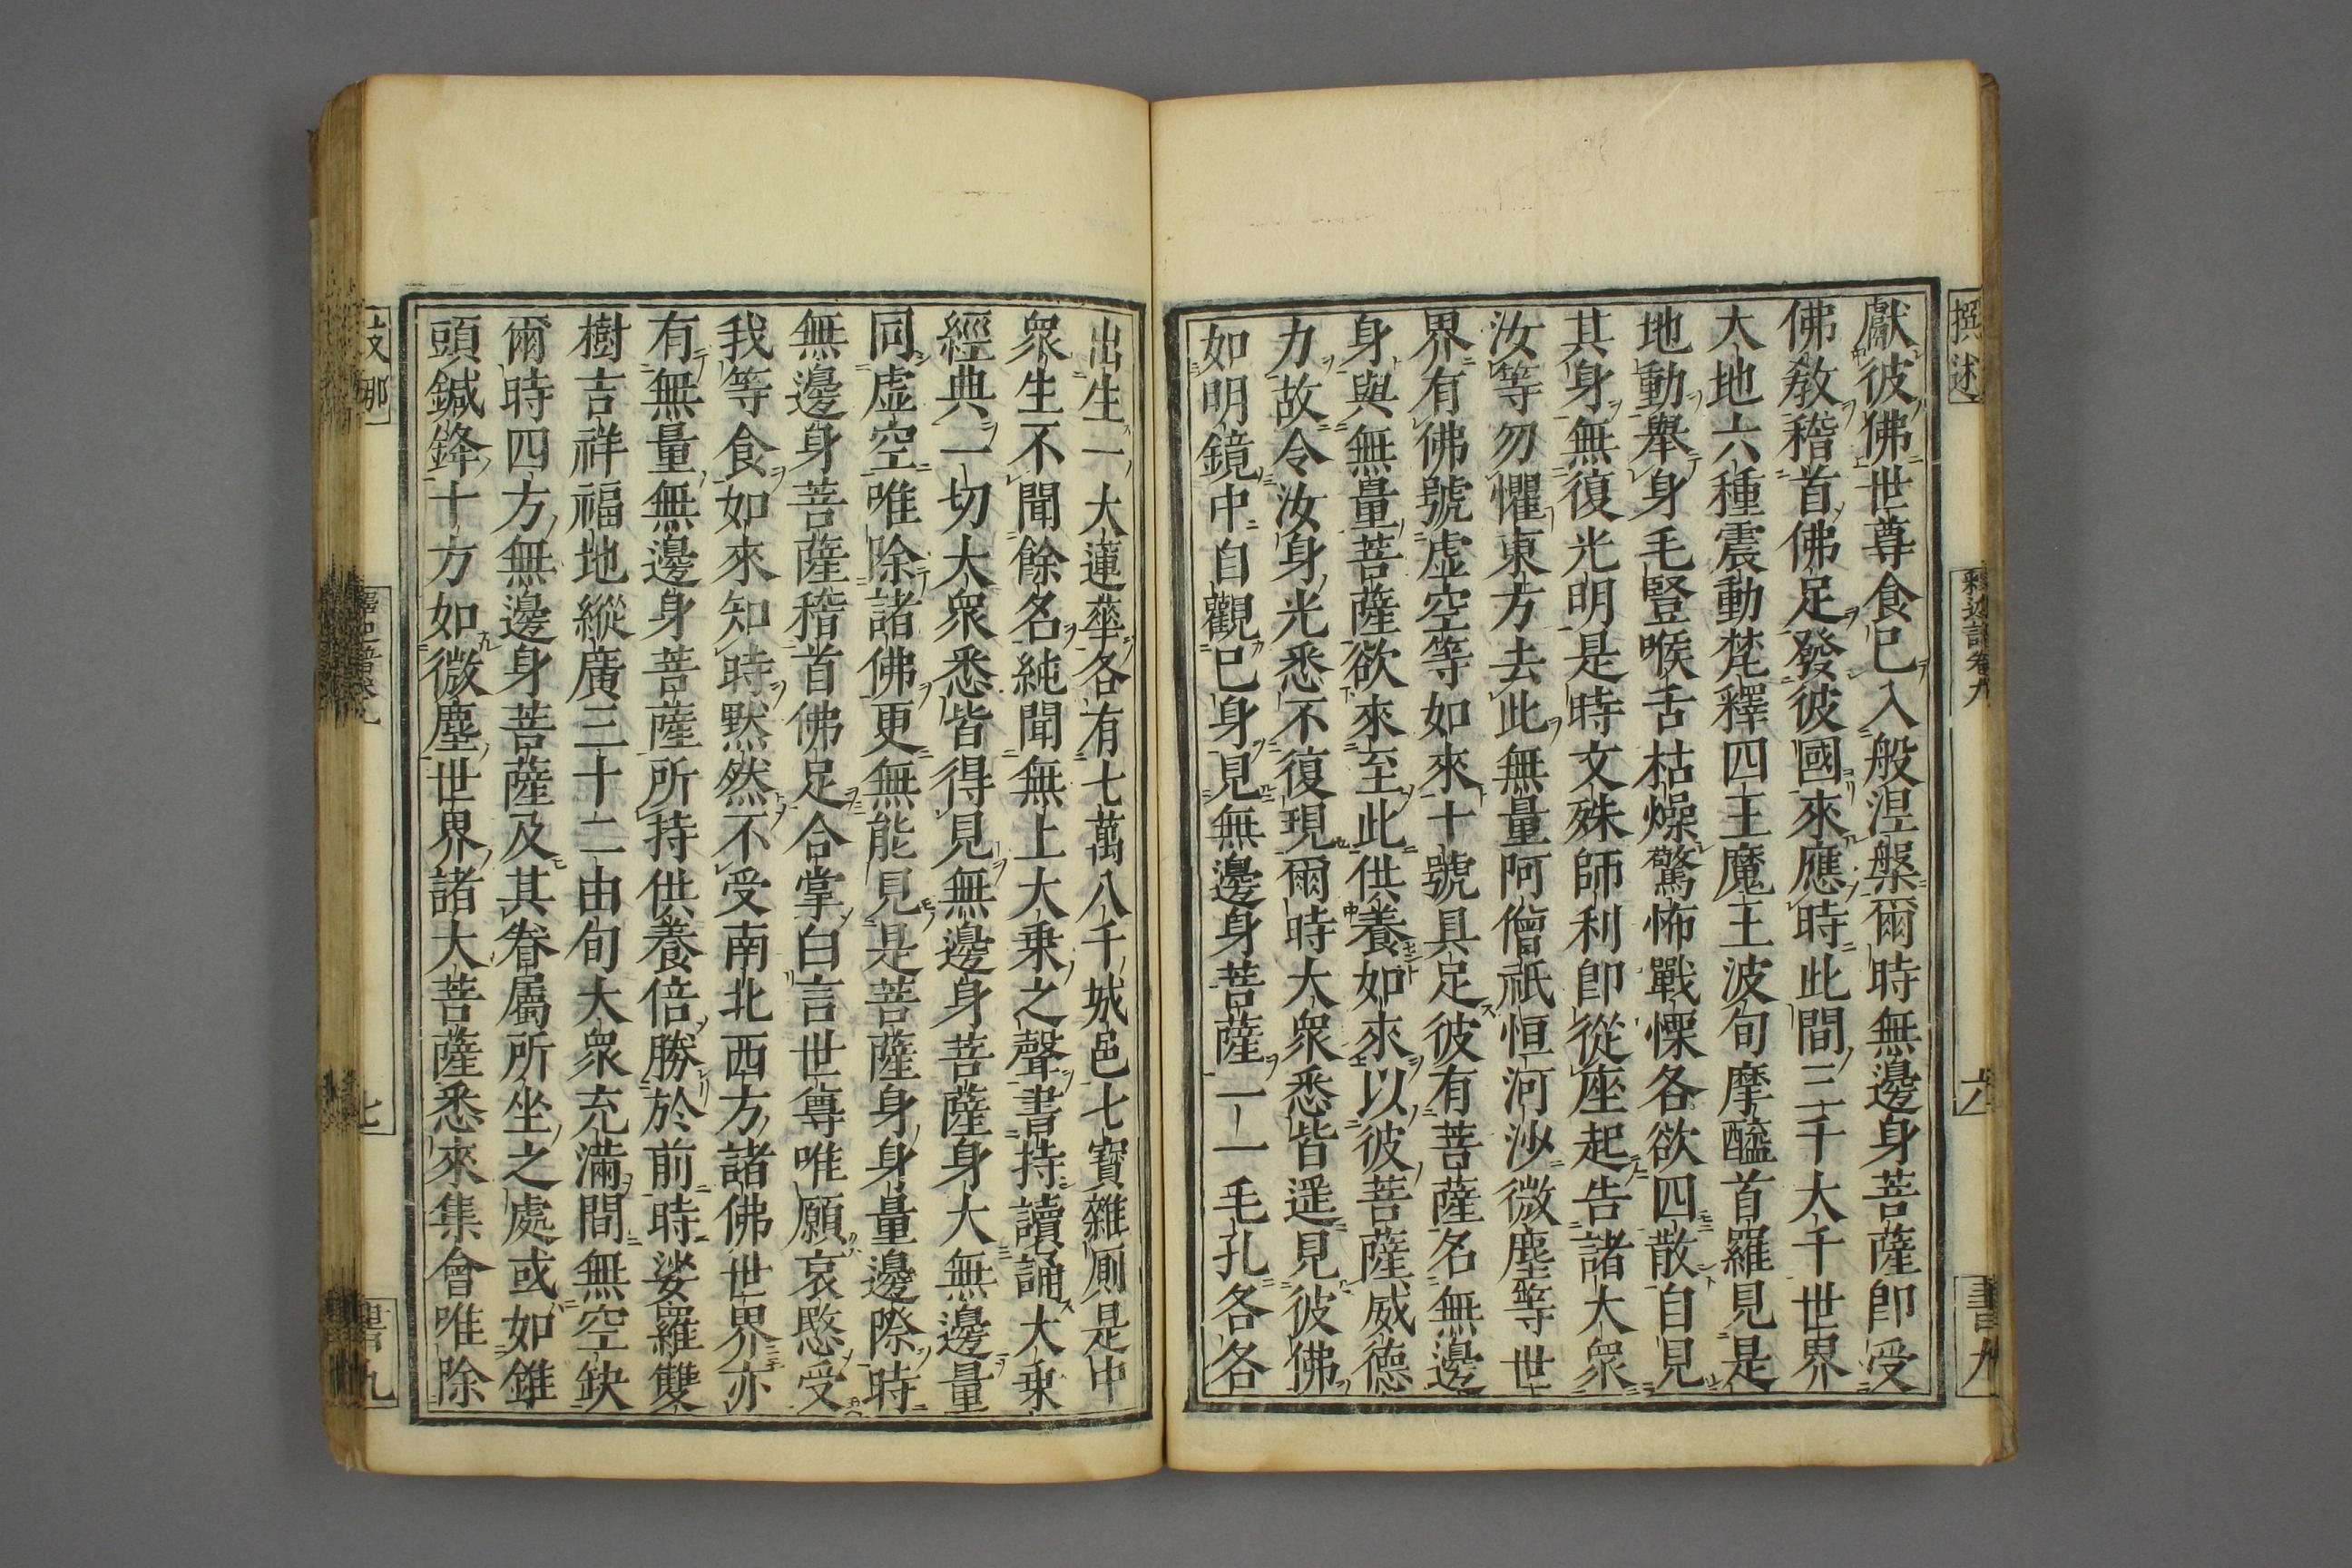 撰述
釋迦譜卷九
六
書九
獻彼佛世尊食已入般涅槃爾時無邊身菩薩卽受
佛教稽首佛足發彼國來應時此間三千大千世界
大地六種震動梵釋四王魔王波旬摩醯首羅見是
地動舉身毛豎喉舌枯燥驚怖戰慄各欲四散自見
其身無復光明是時文殊師利卽從座起告諸大衆
汝等勿懼東方去此無量阿僧祇恒河沙微塵等世
界有佛號虛空等如來十號具足彼有菩薩名無邊
身與無量菩薩欲來至此供養如來以彼菩薩威德
力故令汝身光悉不復現爾時大衆悉皆遥見彼佛
如明鏡中自觀已身見無邊身菩薩一一毛孔各各
出生一大蓮華各有七萬八千城邑七寶雜廁是中
衆生不聞餘名純聞無上大乗之聲書持讀誦大乗
經典一切大衆悉皆得見無邊身菩薩身大無邊量
同虛空唯除諸佛更無能見是菩薩身身量邊際時
無邊身菩薩稽首佛足合掌白言世尊唯願哀愍受
我等食如來知時默然不受南北西方諸佛世界亦
有無量無邊身菩薩所持供養倍勝於前時娑羅雙
樹吉祥福地縱廣三十二由旬大衆充滿間無空缺
爾時四方無邊身菩薩及其眷屬所坐之處或如錐
頭鍼鋒十方如微塵世界諸大菩薩悉來集會唯除
支那
七
書九